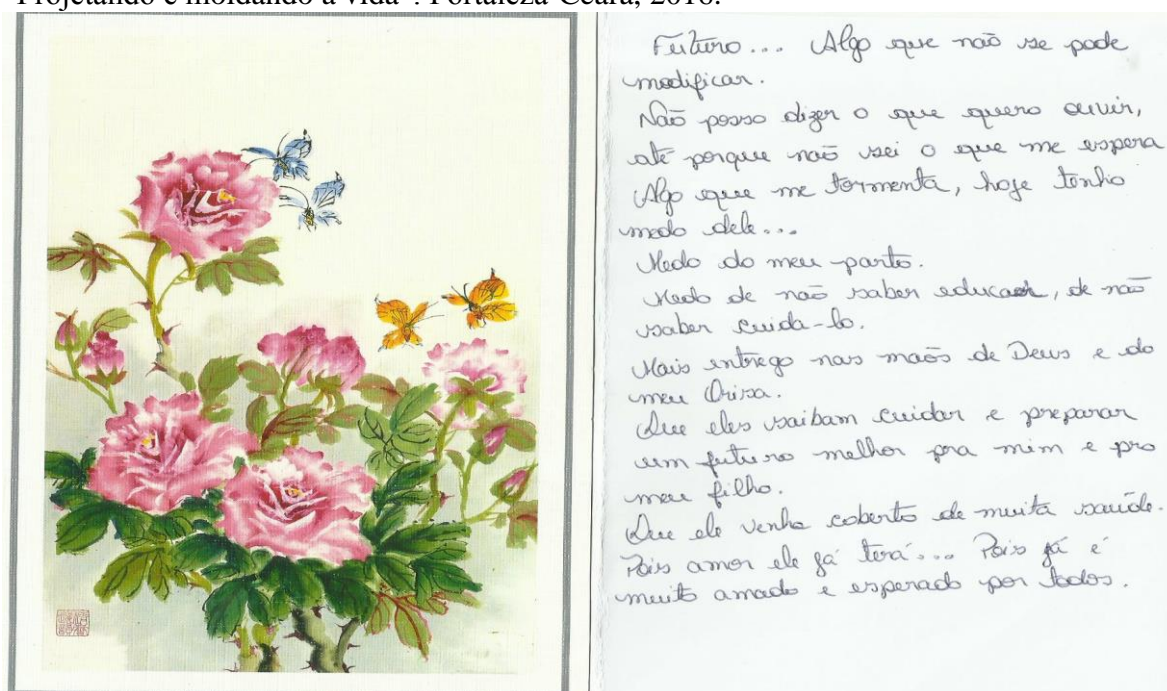 Projetando e moldando a vida". Fortaleza-Ceará, 2016.
Futuro... Algo que não se pode
modificar.
Não posso dizer o que quero ouvir,
até porque não sei o que me espera
Algo que me tormenta, hoje tenho
medo dele...
Medo do meu parto.
Medo de não saber educar, de não
saber cuida-lo.
Mais entrego nas mãos de Deus e do
meu Orixa.
Que eles saibam cuidar e preparar
um futuro melhor pra mim e pro
meu filho.
Que ele venha coberto de muita saúde.
Pois amor ele já terá... Pois já é
muito amado e esperado por todos.